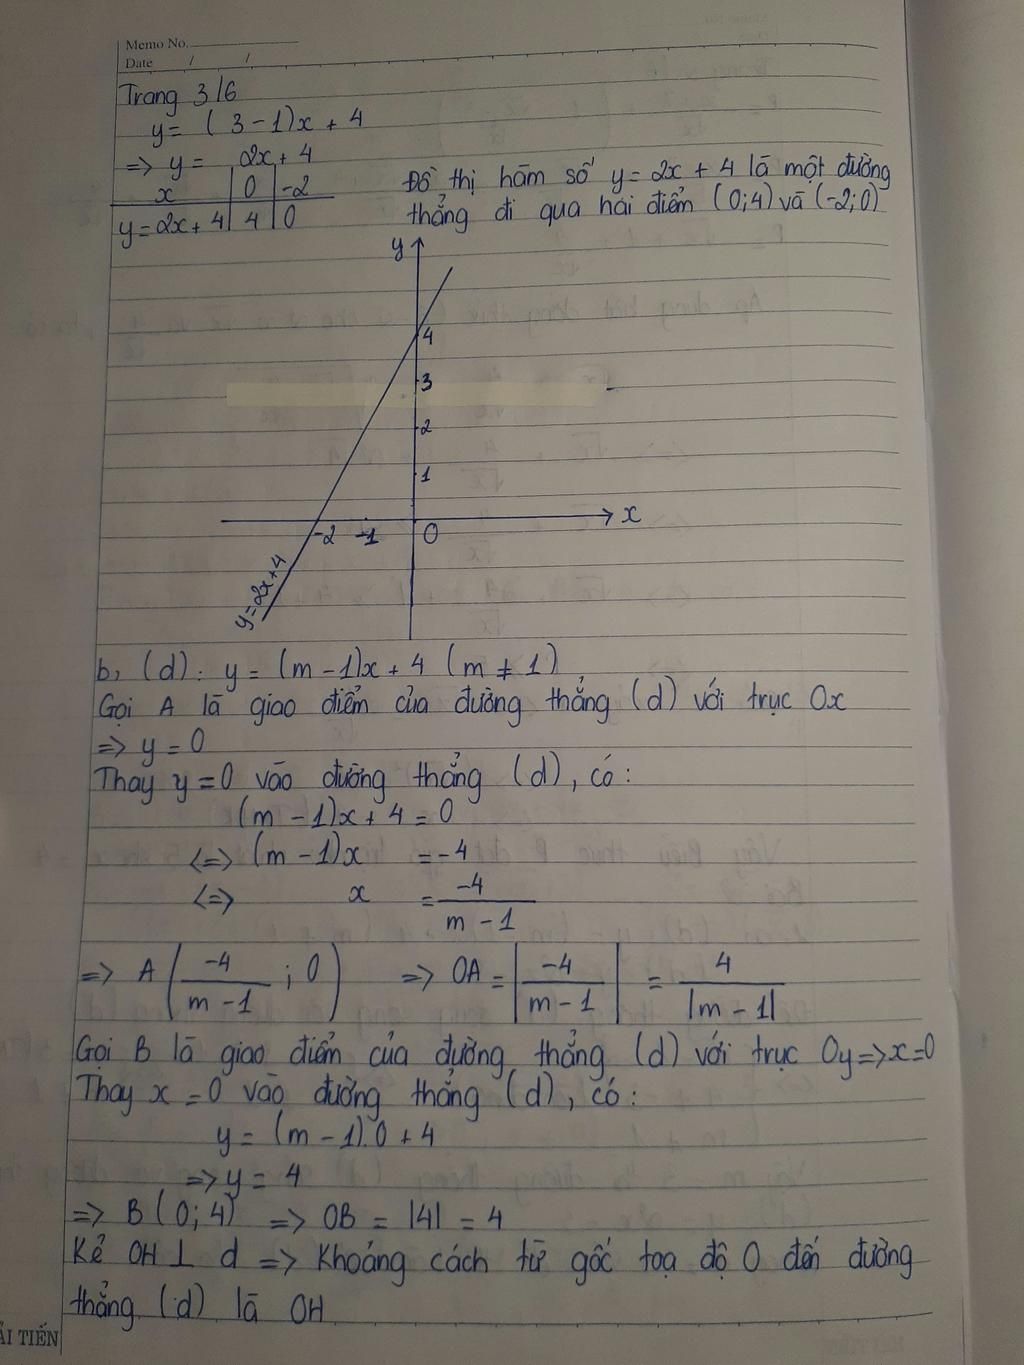 Memo No.
Date / /
Trang 3/6
y = (3 - 1)x + 4
=> y = 2x + 4
x | 0 | -2
y = 2x + 4 | 4 | 0
Đồ thị hàm số y = 2x + 4 là một đường
thẳng đi qua hai điểm (0;4) và (-2;0)
y
4
3
2
1
-2 -1 0 x
y = 2x + 4
b, (d): y = (m - 1)x + 4 (m ≠ 1)
Gọi A là giao điểm của đường thẳng (d) với trục Ox
=> y = 0
Thay y = 0 vào đường thẳng (d), có:
(m - 1)x + 4 = 0
<=> (m - 1)x = -4
<=> x = \frac{-4}{m - 1}
=> A(\frac{-4}{m - 1}; 0) => OA = |\frac{-4}{m - 1}| = \frac{4}{|m - 1|}
Gọi B là giao điểm của đường thẳng (d) với trục Oy => x = 0
Thay x = 0 vào đường thẳng (d), có:
y = (m - 1).0 + 4
=> y = 4
=> B(0; 4) => OB = |4| = 4
Kẻ OH ⊥ d => Khoảng cách từ gốc toạ độ O đến đường
thẳng (d) là OH
ẢI TIẾN